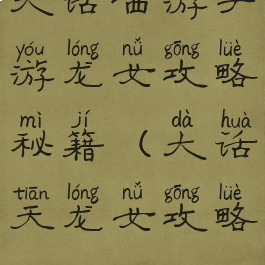 天话西游手
yóu lóng nǚ gōng lüè
游龙女攻略
mì jí dà huà
秘籍(大话
tiān lóng nǚ gōng lüè
天龙女攻略